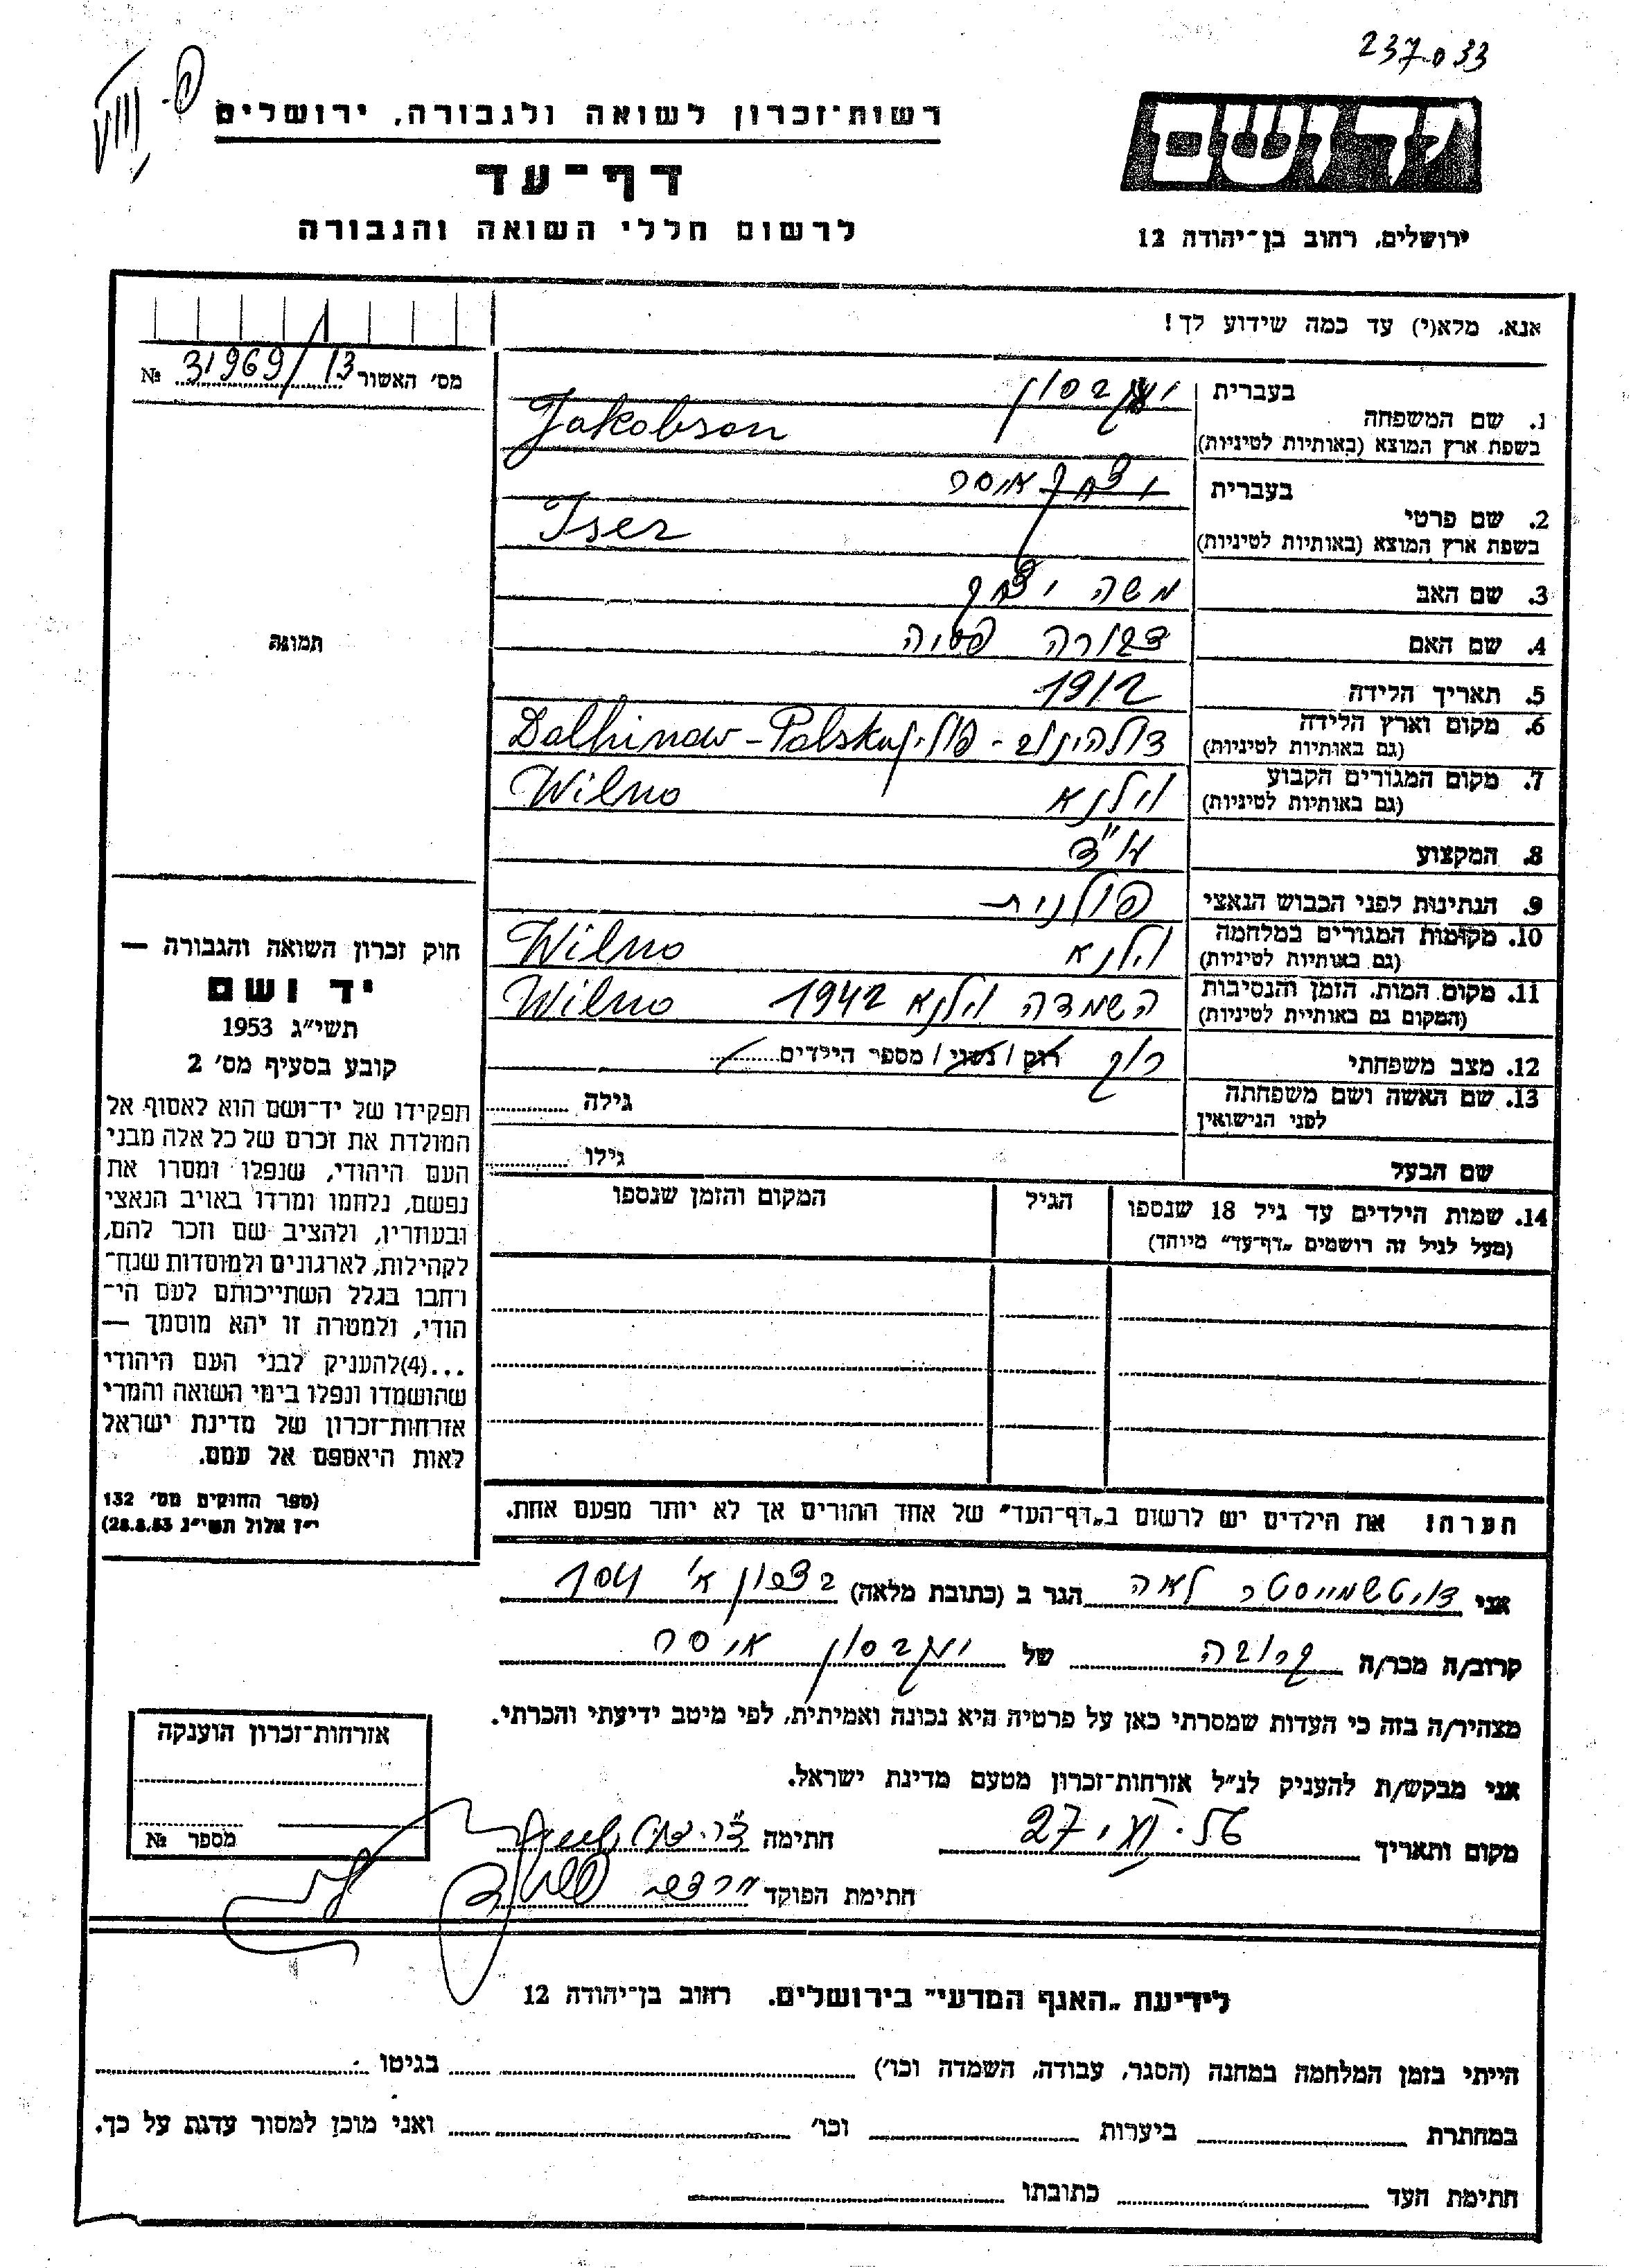 237033
רשות־זכרון לשואה ולגבורה, ירושלים
דף־עד
לרשום חללי השואה והגבורה
יד ושם
ירושלים, רחוב בן־יהודה 12
אנא, מלא(י) עד כמה שידוע לך!
מס׳ האשור 31969/13 №
1. שם המשפחה
בעברית יעקבסון
בשפת ארץ המוצא (באותיות לטיניות) Jakobson
2. שם פרטי
בעברית יצחק איסר
בשפת ארץ המוצא (באותיות לטיניות) Iser
3. שם האב משה יצחק
4. שם האם דבורה
5. תאריך הלידה 1912
6. מקום וארץ הלידה
(גם באותיות לטיניות) דולהינוב - פולין Dolhinow - Polska
7. מקום המגורים הקבוע
(גם באותיות לטיניות) וילנא Wilno
8. המקצוע עו"ד
9. הנתינות לפני הכבוש הנאצי פולנית
10. מקומות המגורים במלחמה
(גם באותיות לטיניות) וילנא Wilno
11. מקום המות, הזמן והנסיבות
(המקום גם באותיות לטיניות) השמדה וילנא 1942 Wilno
12. מצב משפחתי רוק רוק / נשוי / מספר הילדים
13. שם האשה ושם משפחתה
לפני הנישואין
גילה
שם הבעל
גילו
14. שמות הילדים עד גיל 18 שנספו
(מעל לגיל זה רושמים „דף־עד” מיוחד)
הגיל
המקום והזמן שנספו
הערה! את הילדים יש לרשום ב„דף־העד” של אחד ההורים אך לא יותר מפעם אחת.
תמונה
חוק זכרון השואה והגבורה —
יד ושם
תשי״ג 1953
קובע בסעיף מס׳ 2
תפקידו של יד־ושם הוא לאסוף אל
המולדת את זכרם של כל אלה מבני
העם היהודי, שנפלו ומסרו את
נפשם, נלחמו ומרדו באויב הנאצי
ובעוזריו, ולהציב שם וזכר להם,
לקהילות, לארגונים ולמוסדות שנח־
רחבו בגלל השתייכותם לעם הי־
הודי, ולמטרה זו יהא מוסמך —
...(4)להעניק לבני העם היהודי
שהושמדו ונפלו בימי השואה והמרי
אזרחות־זכרון של מדינת ישראל
לאות היאספם אל עמם.
(ספר החוקים מס׳ 132
י״ז אלול תשי״ג 28.8.53)
אני דויטשמייסטר לאה הגר ב (כתובת מלאה) 104
קרוב/ה מכר/ה קרובה של יעקבסון איסר
מצהיר/ה בזה כי העדות שמסרתי כאן על פרטיה היא נכונה ואמיתית, לפי מיטב ידיעתי והכרתי.
אני מבקש/ת להעניק לנ״ל אזרחות־זכרון מטעם מדינת ישראל.
מקום ותאריך 27 חתימה
חתימת הפוקד
אזרחות־זכרון הוענקה
מספר №
לידיעת „האגף המדעי” בירושלים. רחוב בן־יהודה 12
הייתי בזמן המלחמה במחנה (הסגר, עבודה, השמדה וכו׳) בגיטו
במחתרת ביערות וכו׳ ואני מוכן למסור עדות על כך.
חתימת העד כתובתו